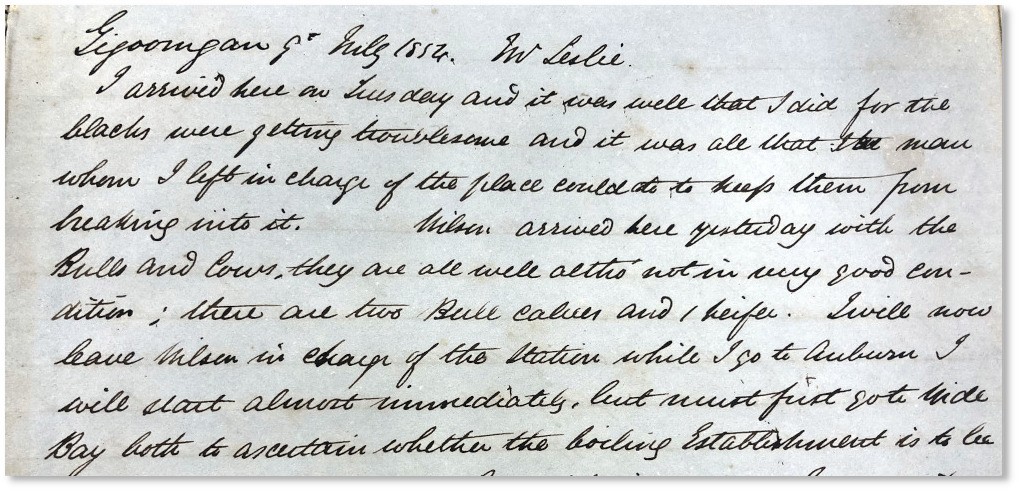 Gigoomgan 9th July 1852. Mr Leslie.
I arrived here on Tuesday and it was well that I did for the
blacks were getting troublesome and it was all that the man
whom I left in charge of the place could do to keep them from
breaking into it. Wilson arrived here yesterday with the
Bulls and Cows, they are all well altho' not in very good con-
dition; there are two Bull calves and 1 heifer. I will now
leave Wilson in charge of the Station while I go to Auburn I
will start almost immediately, but must first go to Wide
Bay both to ascertain whether the boiling Establishment is to be